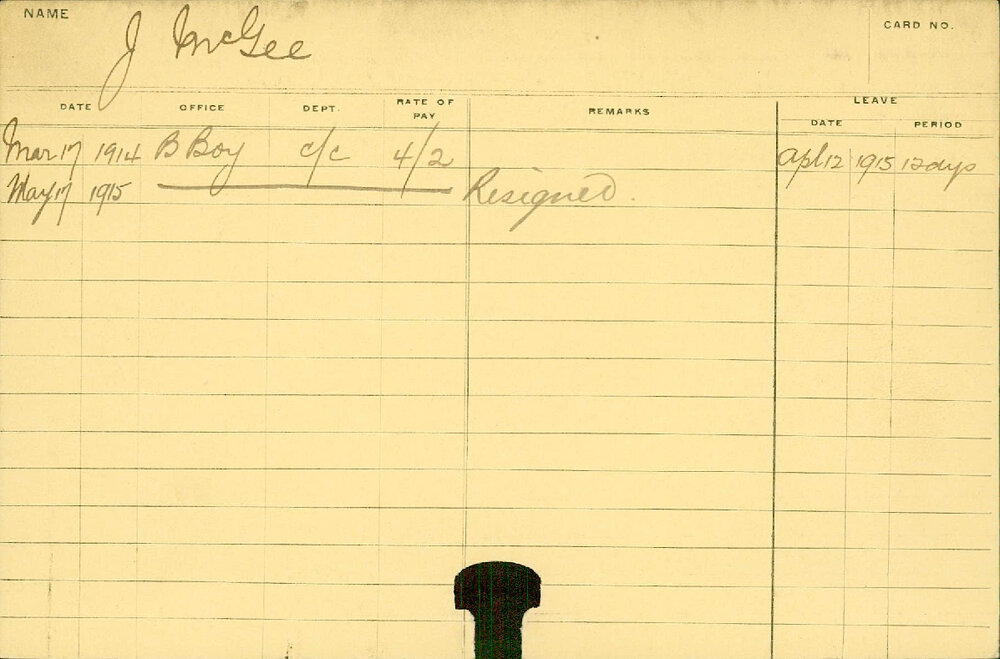 NAME J McGee CARD NO.
DATE OFFICE DEPT. RATE OF PAY REMARKS LEAVE
DATE PERIOD
Mar 17 1914 B Boy c/c 4/2 Apl 12 1915 12 days
May 17 1915 Resigned.